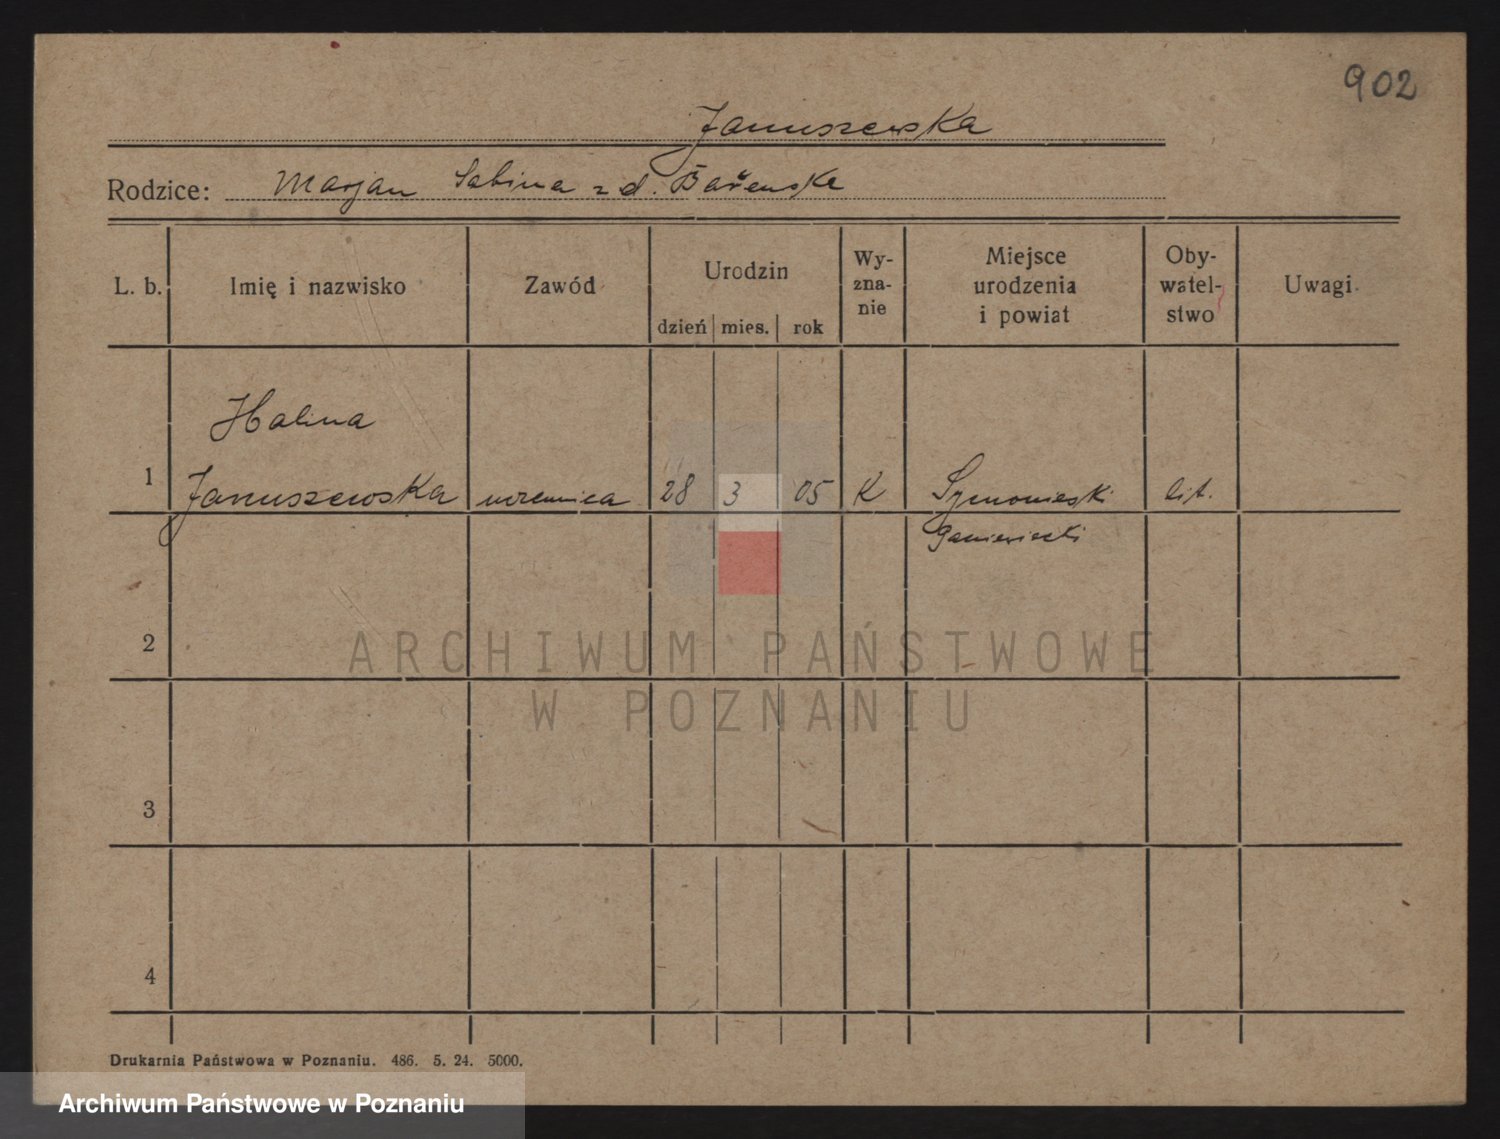 902
Januszewska
Rodzice: Marjan Sabina z d. Bareńska
L. b. Imię i nazwisko Zawód Urodzin Wy-zna-nie Miejsce urodzenia i powiat Oby-watel-stwo Uwagi
dzień mies. rok
Halina
1 Januszewska uczennica 28 3 05 K lit.
2
3
4
ARCHIWUM PAŃSTWOWE
W POZNANIU
Drukarnia Państwowa w Poznaniu. 486. 5. 24. 5000.
Archiwum Państwowe w Poznaniu